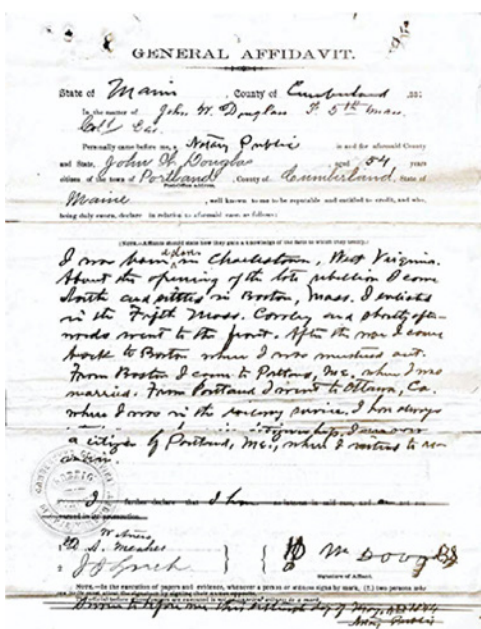 GENERAL AFFIDAVIT.
State of Maine, County of Cumberland, SS:
In the matter of John W. Douglass F. 5th Mass.
Personally came before me, a Notary Public in and for aforesaid County
and State, John W. Douglas aged 54 years
citizen of the town of Portland, County of Cumberland, State of
Maine, well known to me to be reputable and entitled to credit, and who,
being duly sworn, declare in relation to aforesaid case as follows:
(NOTE.—Affiants should state how they gain a knowledge of the facts to which they testify.)
I was born a slave in Charlestown, West Virginia.
About the opening of the late rebellion I come
North and settled in Boston, Mass. I enlisted
in the Fifth Mass. Cavalry and shortly after-
wards went to the front. After the war I come
back to Boston where I was mustered out.
From Boston I came to Portland, Me. where I was
married. From Portland I went to Ottawa, Ca.
where I was in the service. I have always
citizenship. I am now
a citizen of Portland, Me., where I intend to re-
main.
I further declare that I have no interest in said case, and
concerned in its prosecution.
Witness
1 A. Meaher
2 J. J. Lynch
Signature of Affiant.
NOTE.—In the execution of papers and evidence, whenever a person or witness signs by mark, (X,) two persons who
can write must attest the signature by signing their names opposite.
Sworn to before me this day of May, AD
Notary Public